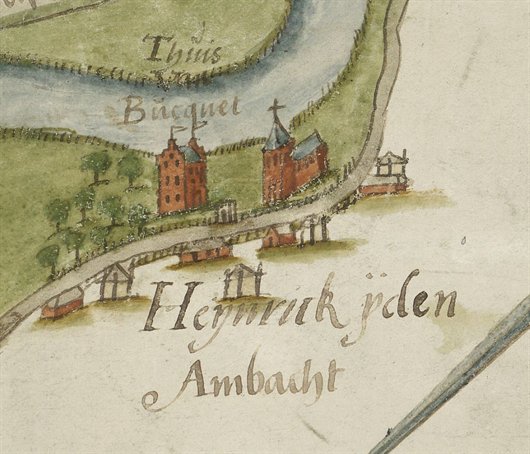 Thuis
van
Bucquet
Heynrick ÿden
Ambacht